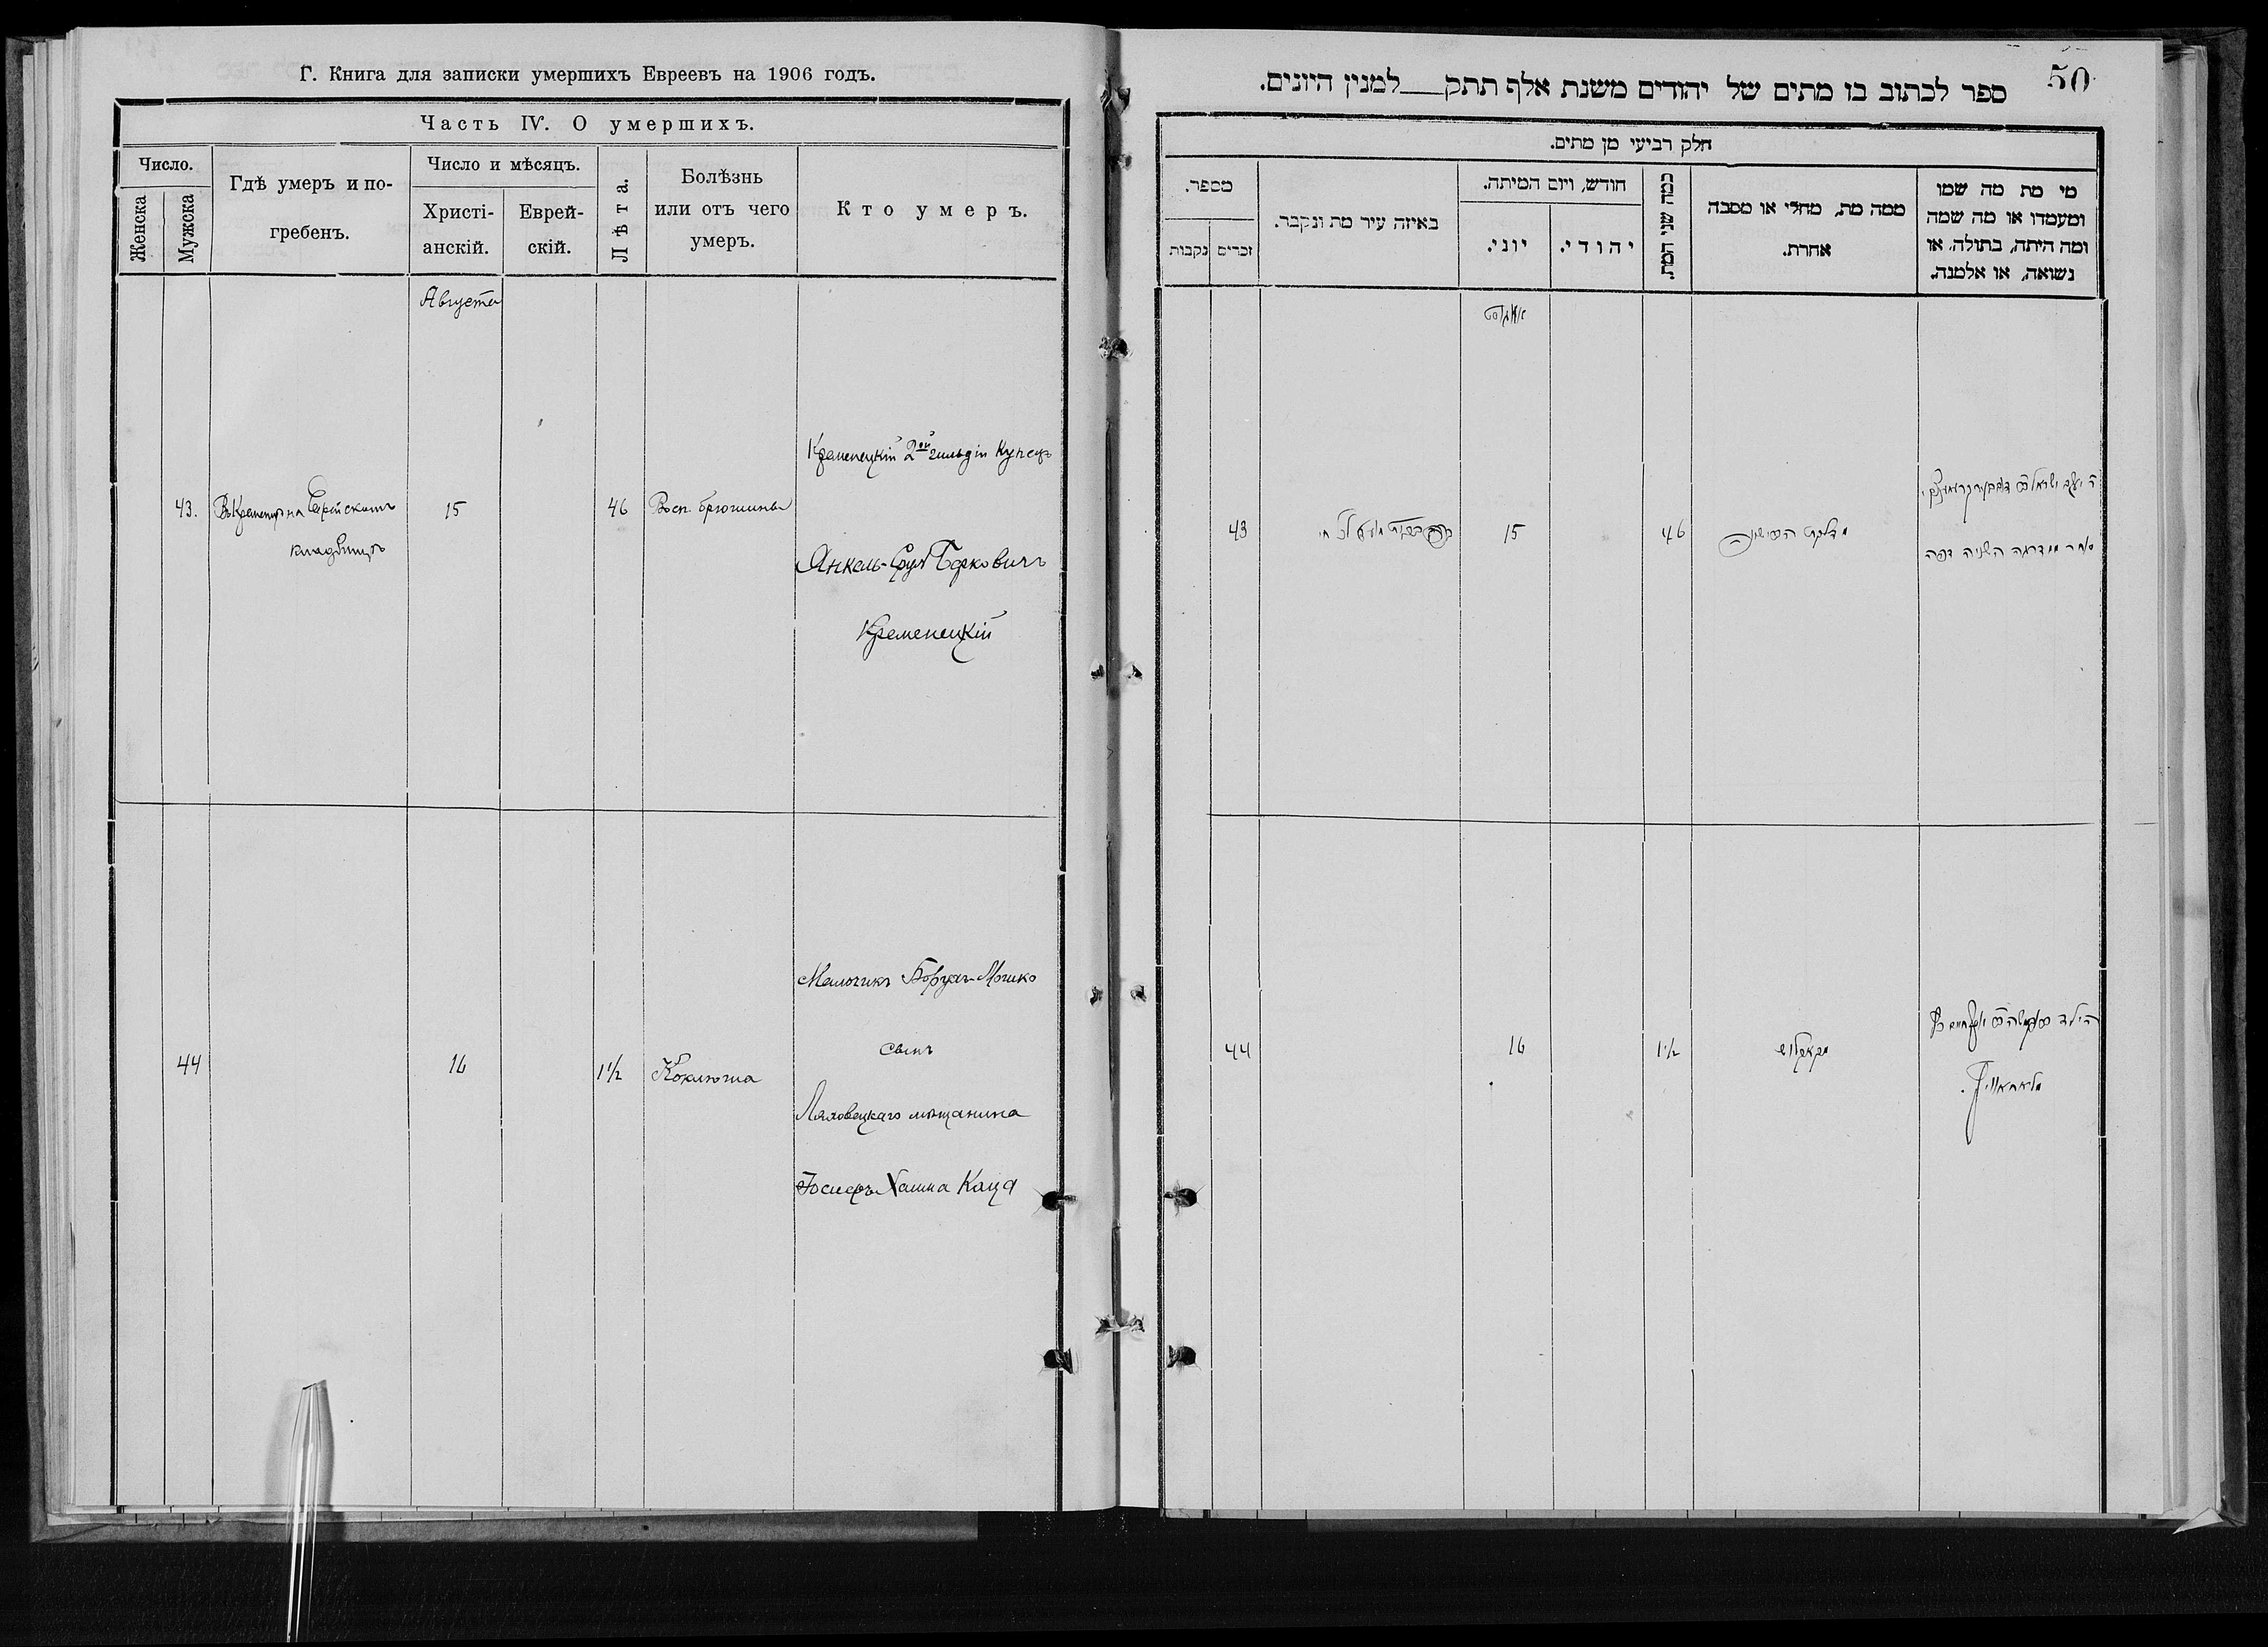 Г. Книга для записки умершихъ Евреевъ на 1906 годъ.
Часть IV. О умершихъ.
Число.
Женска
Мужска
Гдѣ умеръ и по-
гребенъ.
Число и мѣсяцъ.
Христі-
анскій.
Еврей-
скій.
Лѣта.
Болѣзнь
или отъ чего
умеръ.
Кто умеръ.
Августа
43.
Въ Кременцѣ на Еврейскомъ
кладбищѣ
15
46
Восп. брюшины
Кременецкій 2ой гильдіи Купецъ
Янкель-Сруль Берковичъ
Кременецкій
44
16
1 1/2
Коклюша
Мальчикъ Борухъ-Мошко
сынъ
Ляховецкаго мѣщанина
Іосифъ Хаима Каца
50
ספר לכתוב בו מתים של יהודים משנת אלף תתק__למנין היונים.
חלק רביעי מן מתים.
מספר.
נקבות
זכרים
באיזה עיר מת ונקבר.
חודש, ויום המיתה.
יוני.
יהודי.
כמה שני המת.
ממה מת, מחלי או מסבה
אחרת.
מי מת מה שמו
ומעמדו או מה שמה
ומה היתה, בתולה, או
נשואה, או אלמנה.
אווגוסט
43
15
46
מדלקת
ר' יעקב ישראל
סוחר ממדרגה השניה דפה
44
16
1 1/2
הילד